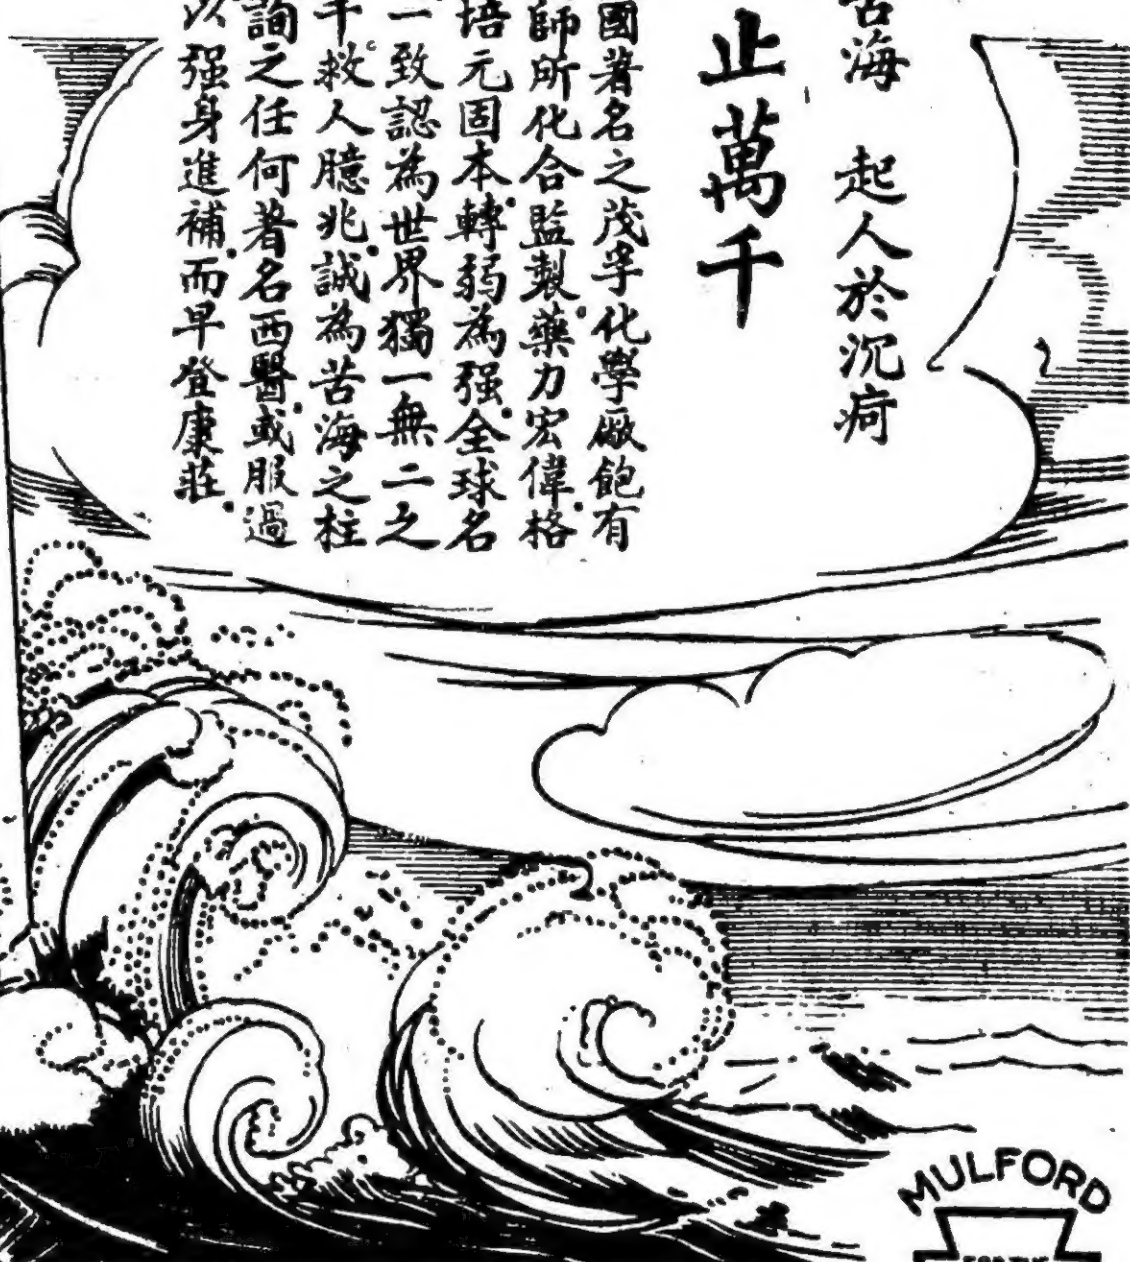 苦海　起人於沉疴
止萬千
國著名之茂孚化學廠飽有
師所化合監製。藥力宏偉。格
培元固本。轉弱為強。全球名
一致認為世界獨一無二之
千。救人臆兆。誠為苦海之柱
詢之任何著名西醫。或服過
以强身進補。而早登康莊。
MULFORD